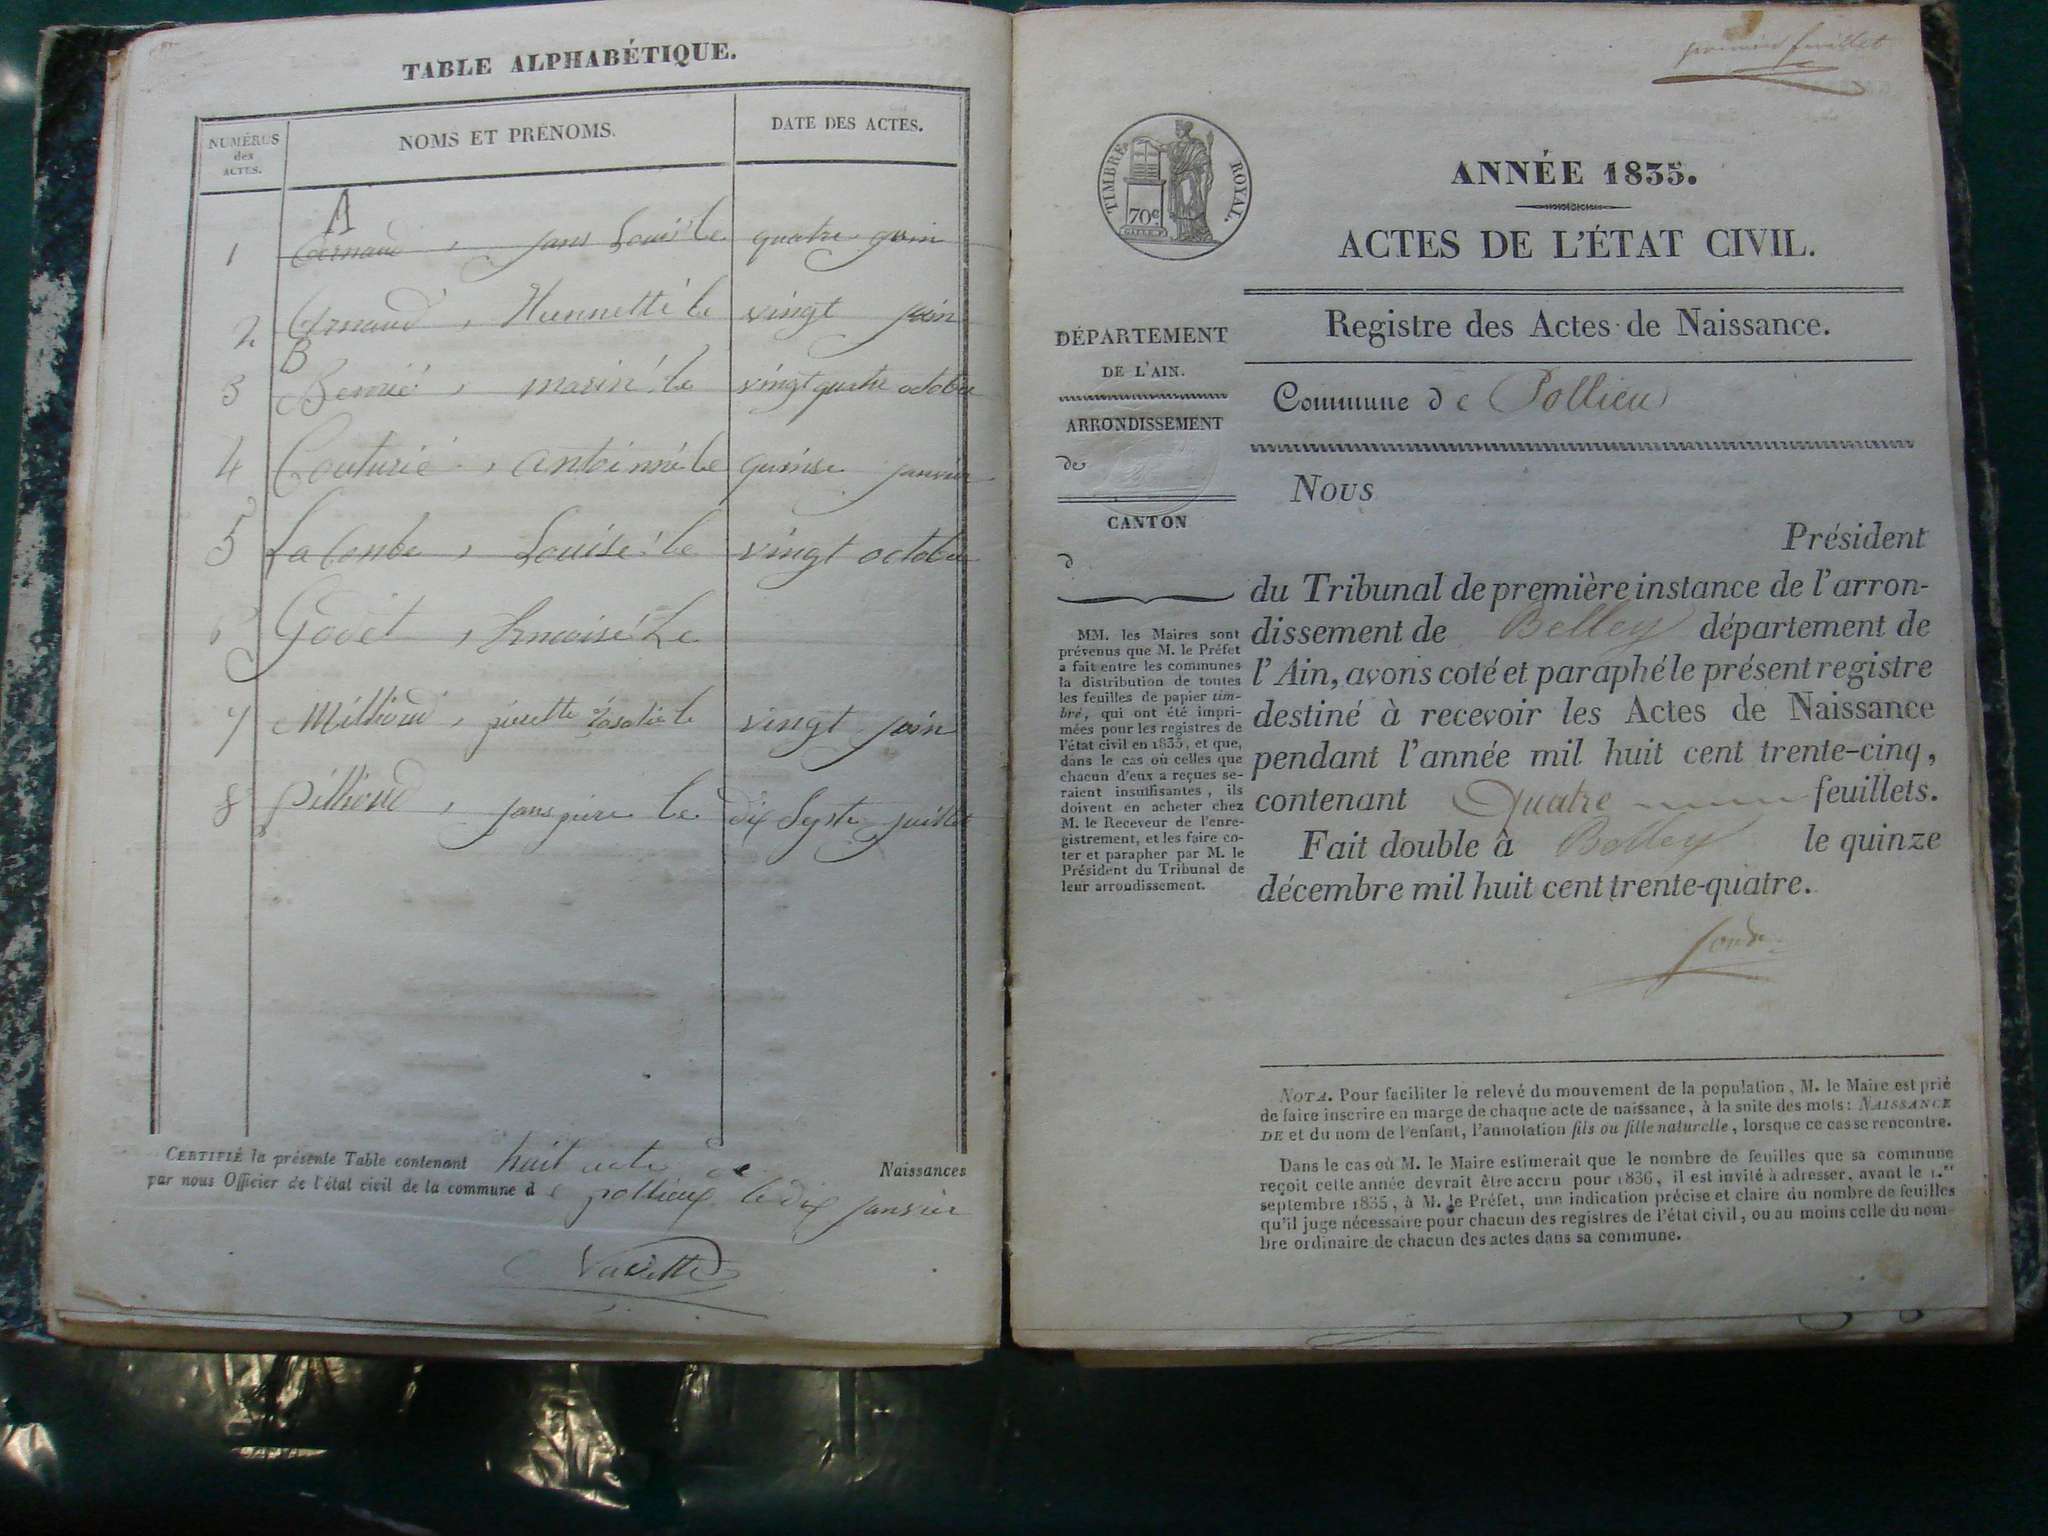 TABLE ALPHABÉTIQUE.
NUMÉROS des ACTES.
NOMS ET PRÉNOMS.
DATE DES ACTES.
A
1 Arnaud, jans Louis le quatre juin
2 Arnaud, Hennette le vingt juin
B
3 marin le vingt quatre octobre
4 Couturié, antoinne le quinse janvier
5 La Combe, Louise le vingt octobre
6 Godet, le
7 Milliond, pierette rosalie le vingt juin
8 pillioud, jans piere le dix sept juillet
CERTIFIÉ la présente Table contenant huit acte de Naissances
par nous Officier de l'état civil de la commune de pollieux le dix janvier
premier feuillet
TIMBRE ROYAL.
70c
ANNÉE 1835.
ACTES DE L'ÉTAT CIVIL.
Registre des Actes de Naissance.
DÉPARTEMENT
DE L'AIN.
ARRONDISSEMENT
de
CANTON
d
MM. les Maires sont
prévenus que M. le Préfet
a fait entre les communes
la distribution de toutes
les feuilles de papier tim-
bré, qui ont été impri-
mées pour les registres de
l'état civil en 1835, et que,
dans le cas où celles que
chacun d'eux a reçues se-
raient insuffisantes, ils
doivent en acheter chez
M. le Receveur de l'enre-
gistrement, et les faire co-
ter et parapher par M. le
Président du Tribunal de
leur arrondissement.
Commune de Pollieu
Nous
Président
du Tribunal de première instance de l'arron-
dissement de Belley département de
l'Ain, avons coté et paraphé le présent registre
destiné à recevoir les Actes de Naissance
pendant l'année mil huit cent trente-cinq,
contenant Quatre feuillets.
Fait double à Belley le quinze
décembre mil huit cent trente-quatre.
NOTA. Pour faciliter le relevé du mouvement de la population, M. le Maire est prié
de faire inscrire en marge de chaque acte de naissance, à la suite des mots: NAISSANCE
DE et du nom de l'enfant, l'annotation fils ou fille naturelle, lorsque ce cas se rencontre.
Dans le cas où M. le Maire estimerait que le nombre de feuilles que sa commune
reçoit cette année devrait être accru pour 1836, il est invité à adresser, avant le 1.er
septembre 1835, à M. le Préfet, une indication précise et claire du nombre de feuilles
qu'il juge nécessaire pour chacun des registres de l'état civil, ou au moins celle du nom-
bre ordinaire de chacun des actes dans sa commune.